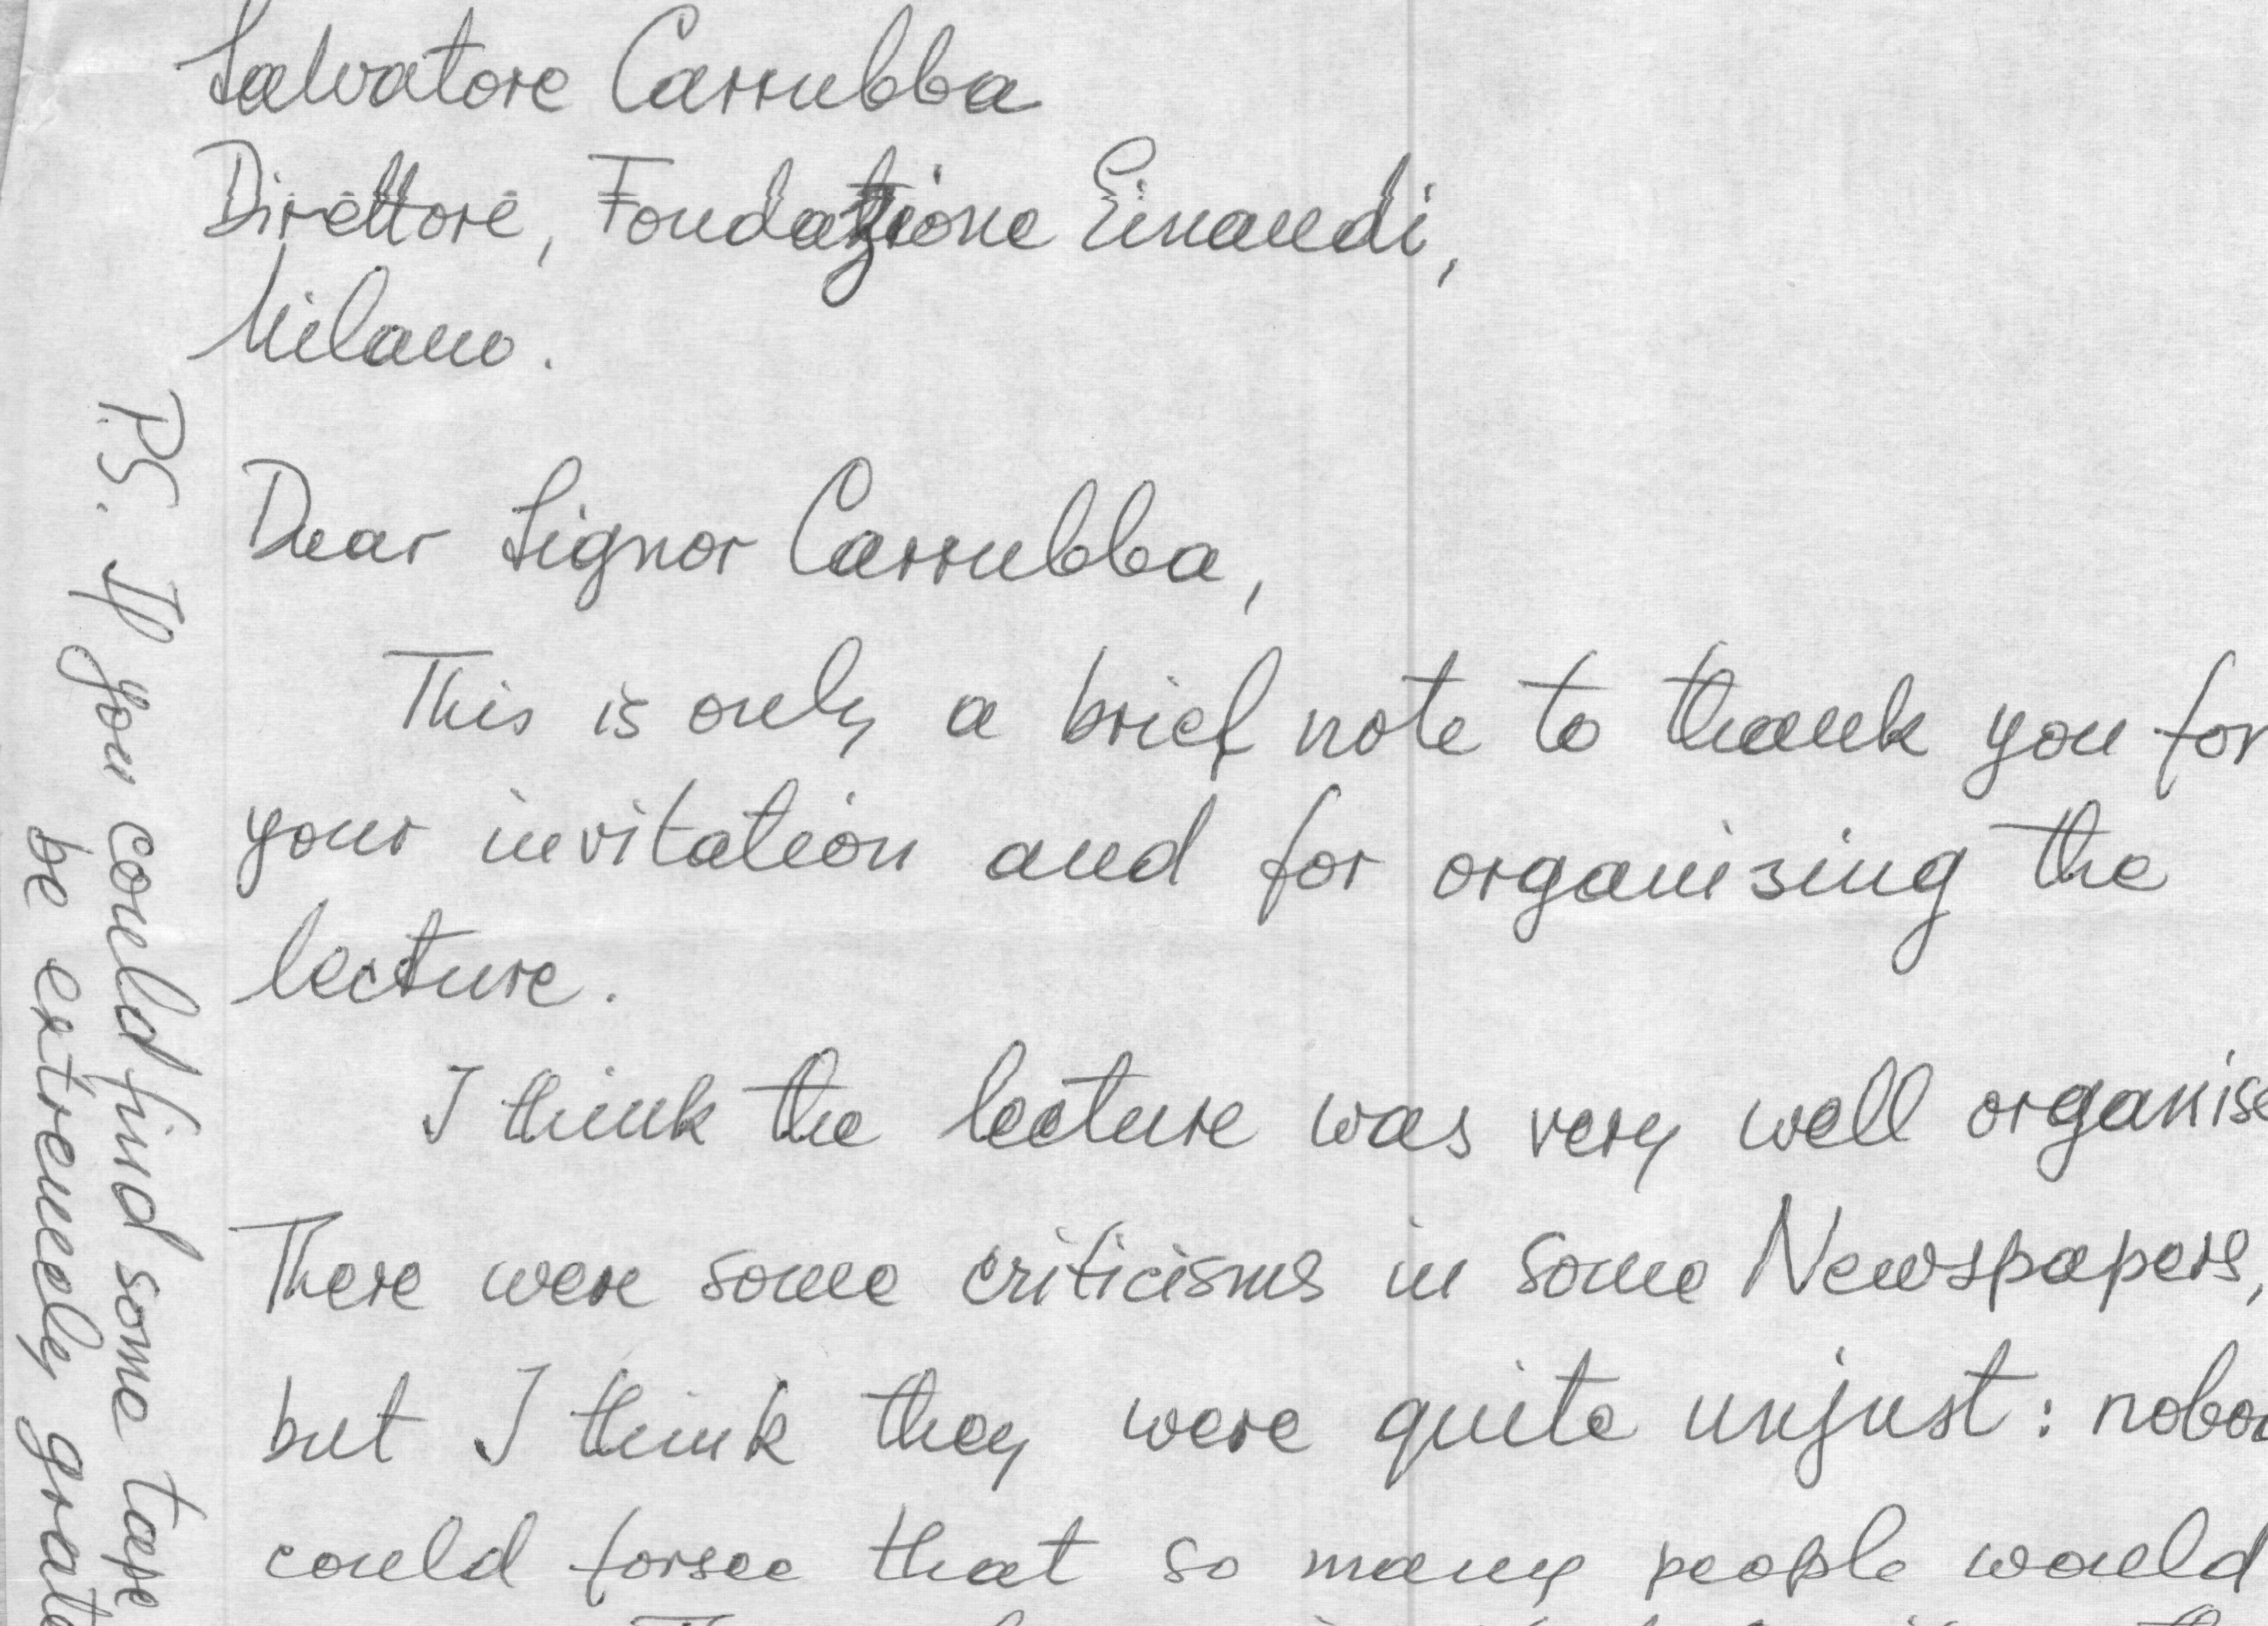 Salvatore Carrubba
Direttore, Fondazione Einaudi,
Milano.
Dear Signor Carrubba,
This is only a brief note to thank you for
your invitation and for organising the
lecture.
I think the lecture was very well organise
There were some criticisms in some Newspapers,
but I think they were quite unjust: nobod
could forsee that so many people would
P.S. If you could find some tape
be extremely grate